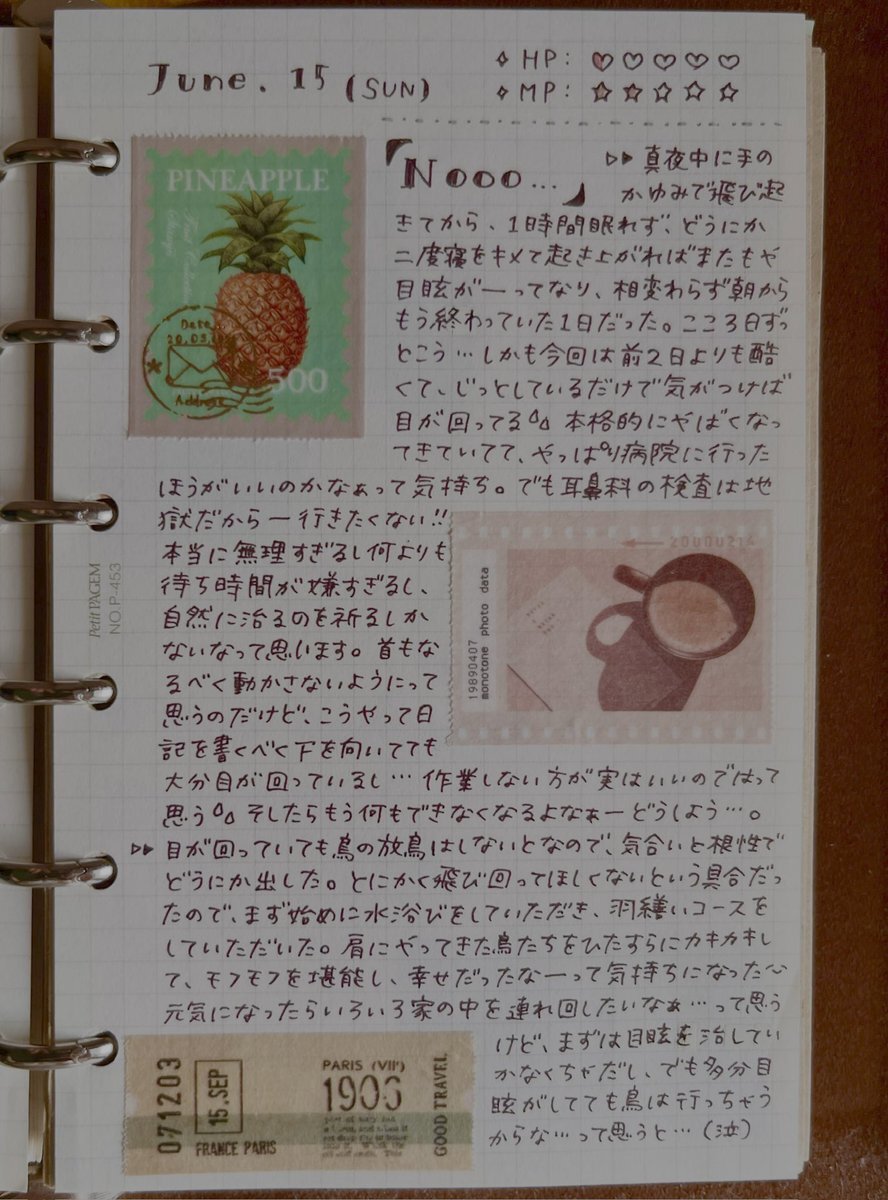 June. 15 (SUN)
◇ HP: ♡♡♡♡♡
◇ MP: ☆☆☆☆☆
PINEAPPLE
Date
Address
500
「Nooo...」
▷▷ 真夜中に手の
かゆみで飛び起
きてから、1時間眠れず、どうにか
二度寝をキメて起き上がればまたもや
目眩がーってなり、相変わらず朝から
もう終わっていた1日だった。ここ3日ずっ
とこう…しかも今回は前2日よりも酷
くて、じっとしているだけで気がつけば
目が回ってる 本格的にやばくなっ
てきていてて、やっぱり病院に行った
ほうがいいのかなぁって気持ち。でも耳鼻科の検査は地
獄だからー行きたくない!!
本当に無理すぎるし何よりも
待ち時間が嫌すぎるし、
自然に治るのを祈るしか
ないなって思います。首もな
るべく動かさないようにって
思うのだけど、こうやって日
記を書くべく下を向いてても
大分目が回っているし… 作業しない方が実はいいのではって
思う そしたらもう何もできなくなるよなぁーどうしよう…。
20000214
19890407
monotone photo data
▷▷ 目が回っていても鳥の放鳥はしないとなので、気合いと根性で
どうにか出した。とにかく飛び回ってほしくないという具合だっ
たので、まず始めに水浴びをしていただき、羽繕いコースを
していただいた。肩にやってきた鳥たちをひたすらにカキカキし
て、モフモフを堪能し、幸せだったなーって気持ちになった♡
元気になったらいろいろ家の中を連れ回したいなぁ…って思う
けど、まずは目眩を治してい
かなくちゃだし、でも多分目
眩がしてても鳥は行っちゃう
からな…って思うと…(泣)
071203
15.SEP
FRANCE PARIS
PARIS (VIIe)
1906
GOOD TRAVEL
Petit PAGEM
NO.P-453